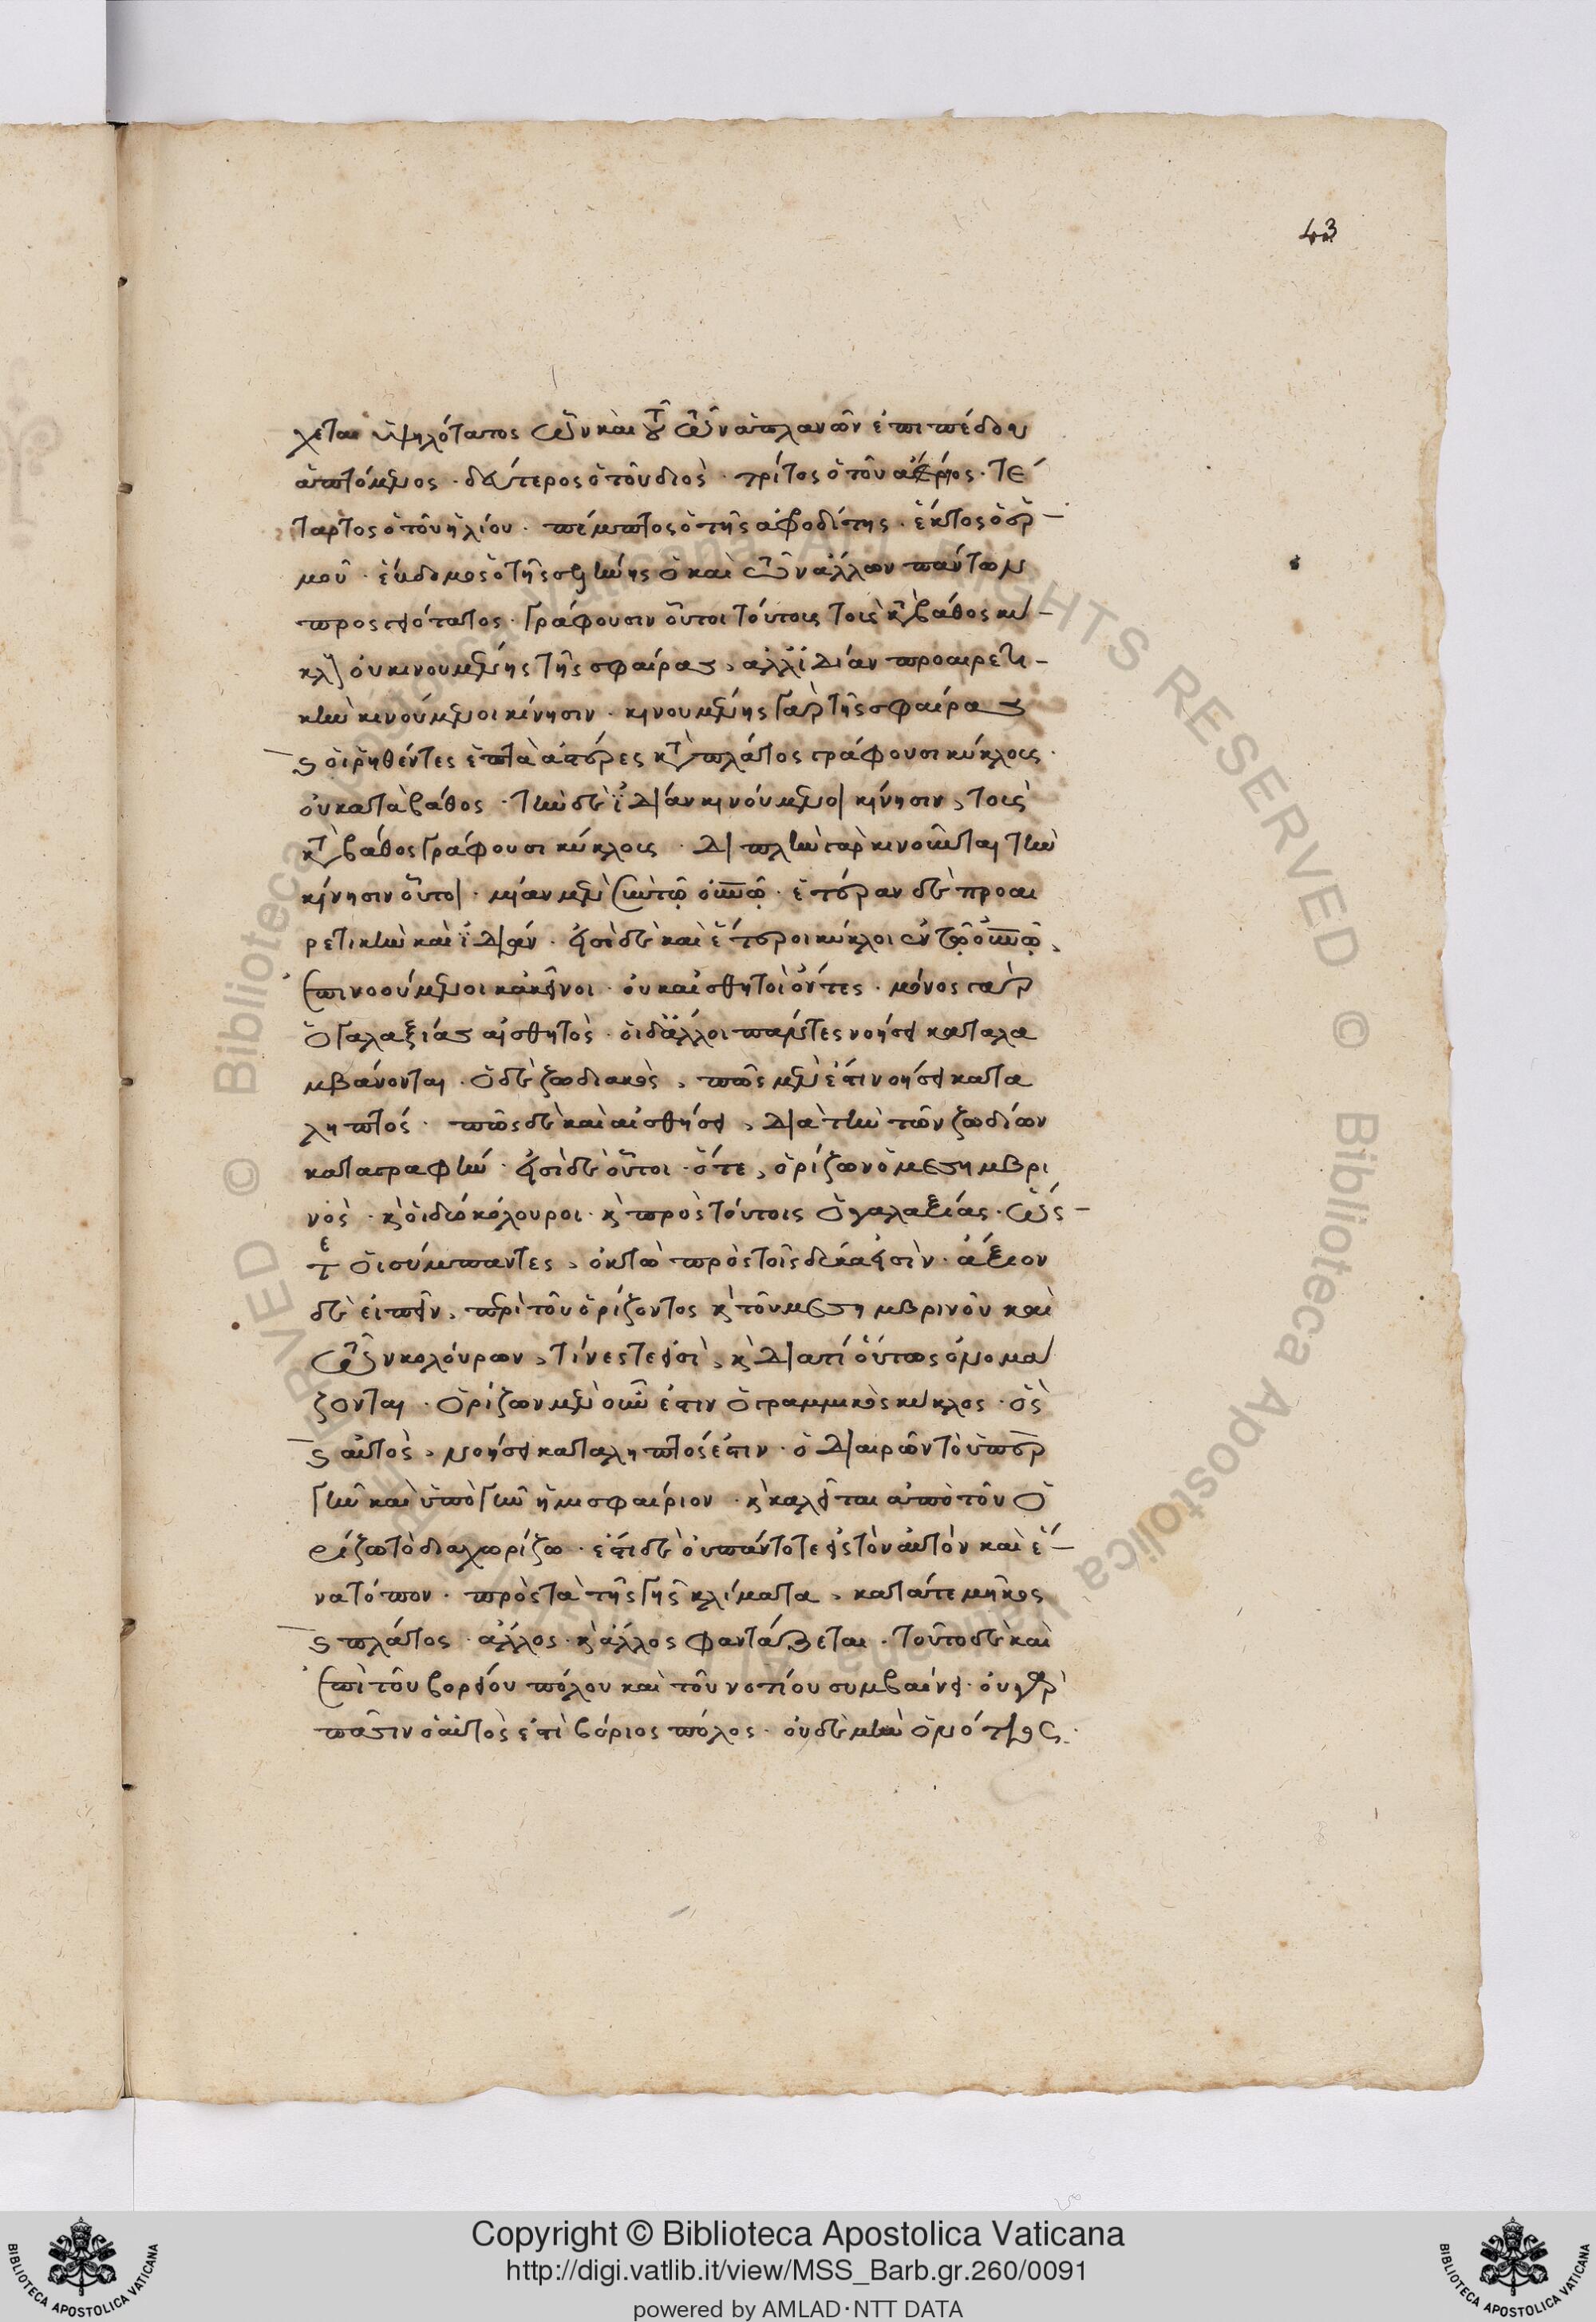 43
χεται ὑψηλότατος ὢν καὶ τοῦ τῶν ἀπλανῶν ἐπιπέδου
ἁπτόμενος · δεύτερος ὁ τοῦ διὸς · τρίτος ὁ τοῦ ἄρεος · τέ
ταρτος ὁ τοῦ ἡλίου · πέμπτος ὁ τῆς ἀφροδίτης · ἕκτος ὁ ἑρ-
μοῦ · ἕβδομος ὁ τῆς σελήνης ὁ καὶ τῶν ἄλλων πάντων
προσγειότατος · γράφουσιν οὗτοι τούτοις τοῖς κατὰ βάθος κύ-
κλους οὐ κινουμένης τῆς σφαίρας, ἀλλ' ἰδίαν προαιρετι-
κὴν κινούμενοι κίνησιν · κινουμένης γὰρ τῆς σφαίρας
οἱ ῥηθέντες ἑπτὰ ἀστέρες κατὰ πλάτος γράφουσι κύκλοις ·
οὐ κατὰ βάθος · τὴν δὲ ἰδίαν κινούμενοι κίνησιν, τοὶς
κατὰ βάθος γράφουσι κύκλοις · διπλὴν γὰρ κινοῦνται τὴν
κίνησιν οὗτοι · μίαν μὲν σὺν τῷ οὐρανῷ · ἑτέραν δὲ προαι
ρετικὴν καὶ ἰδίαν · εἰσὶ δὲ καὶ ἕτεροι κύκλοι ἐν τῷ οὐρανῷ,
ἐπινοούμενοι κἀκεῖνοι · οὐκ αἰσθητοὶ ὄντες · μόνος γὰρ
ὁ γαλαξίας αἰσθητὸς · οἱ δ' ἄλλοι πάντες νοήσει καταλα
μβάνονται · ὁ δὲ ζωδιακὸς, πῶς μὲν ἐστὶ νοήσει κατα
ληπτός · πῶς δὲ καὶ αἰσθήσει, διὰ τὴν τῶν ζωδίων
καταγραφήν · εἰσὶ δὲ οὗτοι · ὅ τε, ὁρίζων ὁ μεσημβρι
νὸς · καὶ οἱ δύο κόλουροι · καὶ πρὸς τούτοις ὁ γαλαξίας · ὥς-
τε οἱ σύμπαντες, ὀκτὼ πρὸς τοῖς δέκα εἰσὶν · ἄξιον
δὲ εἰπεῖν, περὶ τοῦ ὁρίζοντος καὶ τοῦ μεσημβρινοῦ καὶ
τῶν κολούρων, τίνες τε εἰσὶ, καὶ διατί οὕτως ὀνομά
ζονται · ὁρίζων μὲν οὖν ἐστιν ὁ γραμμικὸς κύκλος · ὃς
αὐτὸς, νοήσει καταληπτός ἐστιν · ὁ διαιρῶν τὸ ὑπὲρ
γῆν καὶ ὑπὸ γῆν ἡμισφαίριον · καὶ καλεῖται ἀπὸ τοῦ ὁ
ρίζω τὸ διαχωρίζω · ἐστὶ δὲ οὐ πάντοτε εἰς τὸν αὐτὸν καὶ ἕ-
να τόπον · πρὸς τὰ τῆς γῆς κλίματα, κατά τε μῆκος
πλάτος · ἄλλος · καὶ ἄλλος φαντάζεται · τοῦτο δὲ καὶ
ἐπὶ τοῦ βορείου πόλου καὶ τοῦ νοτίου συμβαίνει · οὐ γὰρ
πᾶσιν ὁ αὐτὸς ἐστὶ βόριος πόλος · οὐδὲ μὴν ὁ νότιος.
Copyright © Biblioteca Apostolica Vaticana
http://digi.vatlib.it/view/MSS_Barb.gr.260/0091
powered by AMLAD·NTT DATA